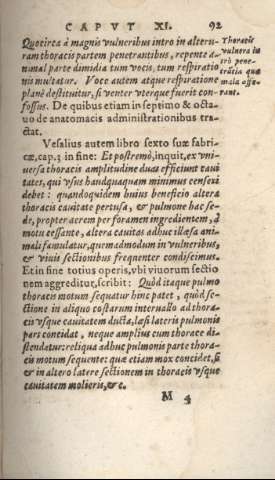 CAPVT XI. 92
Quocirca à magnis vulneribus intro in alteru-
tram thoracis partem penetrantibus, repente a-
nimal parte dimidia tum vocis, tum respiratio
nis mulctatur. Voce autem atque respiratione
planè destituitur, si venter uterque fuerit con-
fossus. De quibus etiam in septimo & octa-
vo de anatomicis administrationibus tra-
ctat.
Thoratis
vulnera in
trò pene-
trātia quæ
mala affe-
rant.
Vesalius autem libro sexto suæ fabri-
cæ, cap. 3 in fine: Et postremò, inquit, ex vni-
versa thoracis amplitudine duæ efficiunt cavi
tates, qui vsus haudquaquam minimus censeri
debet: quandoquidem huius beneficio altera
thoracis cavitate pertusa, & pulmone hac se-
de, propter aerem per foramen ingredientem, à
motu cessante, altera cavitas adhuc illæsa ani-
mali famulatur, quemadmodum in vulneribus,
& viuis sectionibus frequenter condiscimus.
Et in fine totius operis, vbi viuorum sectio
nem aggreditur, scribit: Quòd itaque pulmo
thoracis motum sequatur hinc patet, quòd se-
ctione in aliquo costarum interuallo ad thora-
cis vsque cavitatem ducta, læsi lateris pulmonis
pars concidat, neque amplius cum thorace di-
stendatur: reliqua adhuc pulmonis parte thora-
cis motum sequente: quæ etiam mox concidet, si
& in altero latere sectionem in thoracis vsque
cavitatem molieris, &c.
M 4